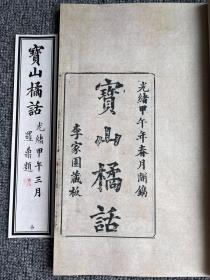 寶山橘話
光緒甲午三月
羅鼎題
光緒甲午年春月開鐫
寶山橘話
李家園藏板